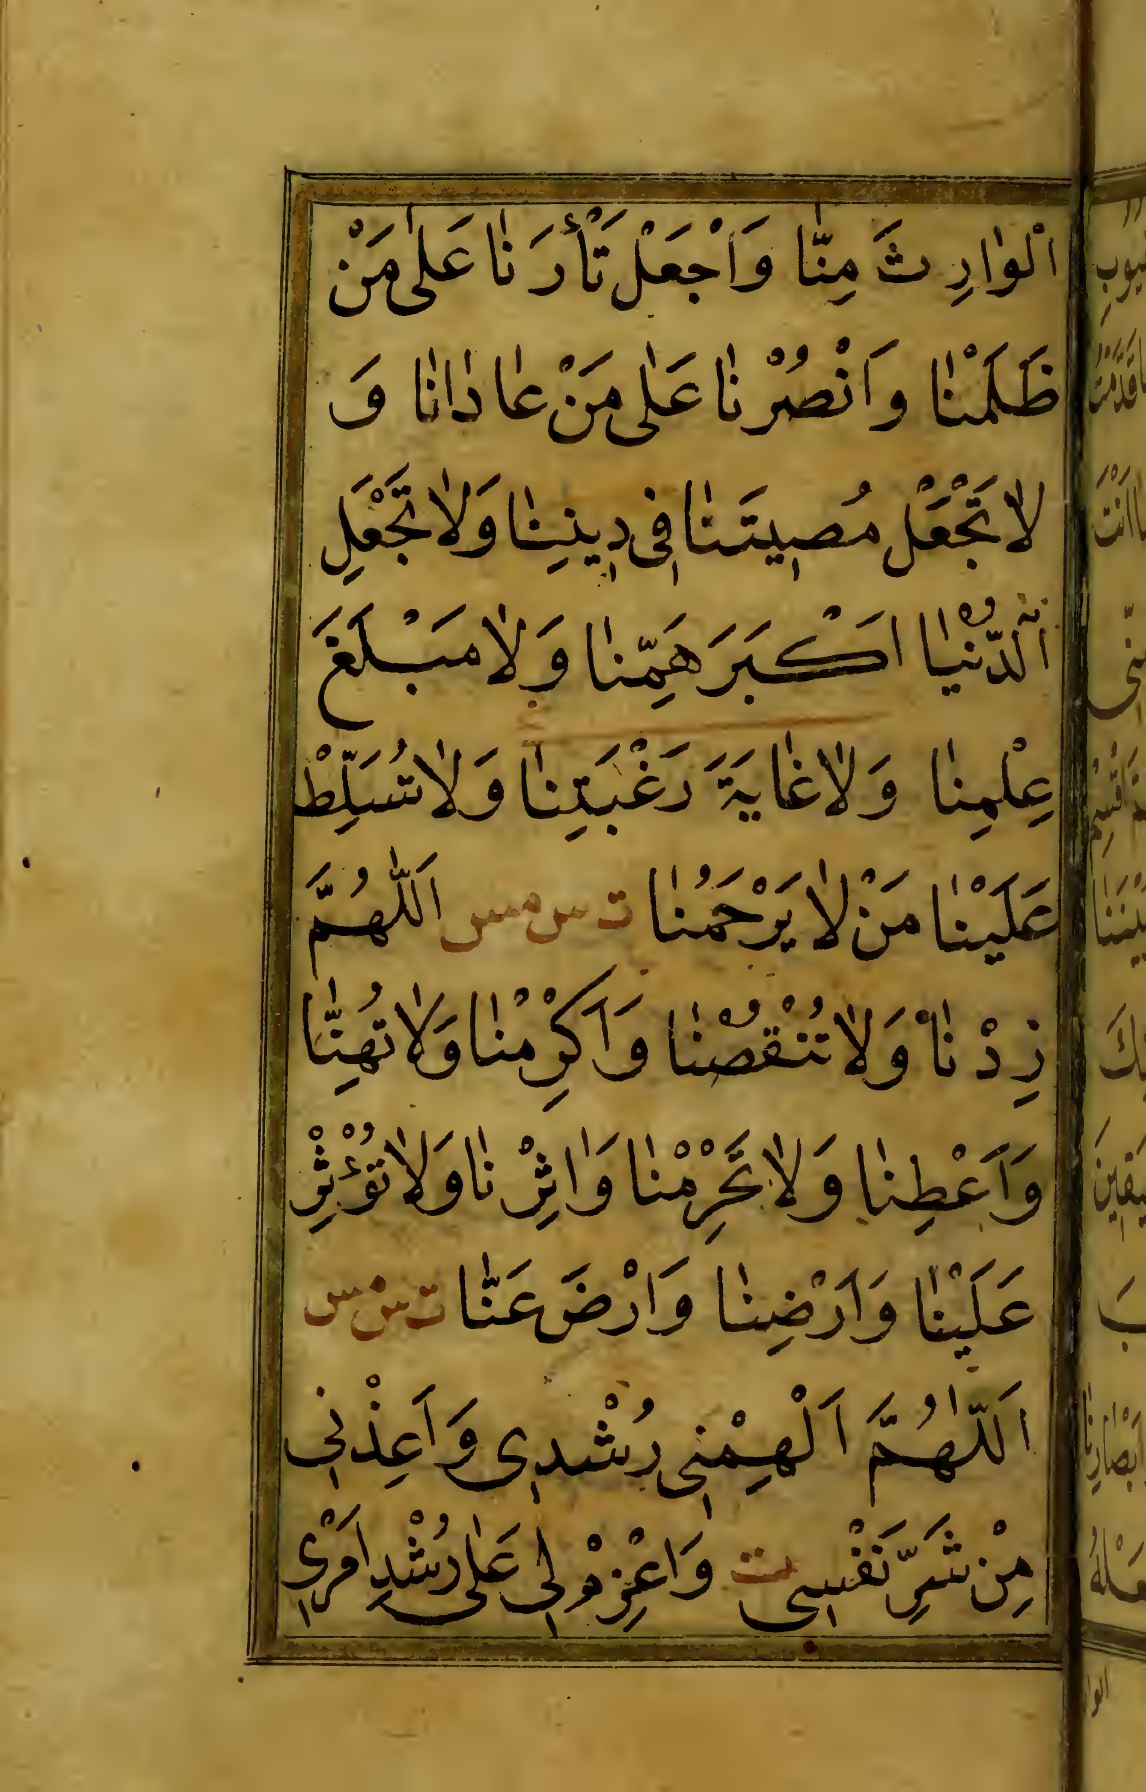 الْوٰارِثَ مِنّٰا وَاجْعَلْ ثَأْرَنٰا عَلٰى مَنْ
ظَلَمَنٰا وَانْصُرْنٰا عَلٰى مَنْ عٰادٰانٰا وَ
لٰا تَجْعَلْ مُصِيبَتَنٰا فِى دِينِنٰا وَلٰا تَجْعَلِ
الدُّنْيٰا اَكْبَرَ هَمِّنٰا وَلٰا مَبْلَغَ
عِلْمِنٰا وَلٰا غٰايَةَ رَغْبَتِنٰا وَلٰا تُسَلِّطْ
عَلَيْنٰا مَنْ لٰا يَرْحَمُنٰا ت س مس اَللّٰهُمَّ
زِدْنٰا وَلٰا تَنْقُصْنٰا وَاَكْرِمْنٰا وَلٰا تُهِنّٰا
وَاَعْطِنٰا وَلٰا تَحْرِمْنٰا وَاٰثِرْنٰا وَلٰا تُؤْثِرْ
عَلَيْنٰا وَاَرْضِنٰا وَارْضَ عَنّٰا ت س مس
اَللّٰهُمَّ اَلْهِمْنِى رُشْدِى وَاَعِذْنِى
مِنْ شَرِّ نَفْسِى ت وَاعْزِمْ لِى عَلٰى رُشْدِ اَمْرِى